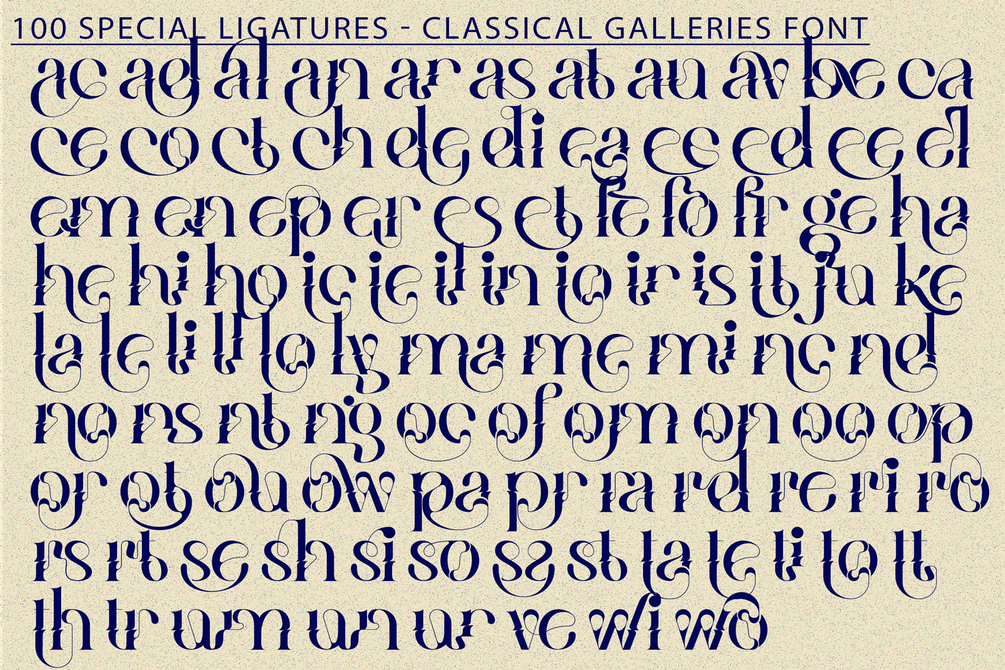 100 SPECIAL LIGATURES - CLASSICAL GALLERIES FONT
ac ad al an ar as at au av be ca
ce co ct ch de di ea ec ed ee el
em en ep er es et fe fo fr ge ha
he hi ho ic ie il in io ir is it ju ke
la le li ll lo ly ma me mi nc nd
no ns nt ng oc of om on oo op
or ot ou ow pa pr ra rd re ri ro
rs rt se sh si so ss st ta te ti to tt
th tr um un ur ve wi wo